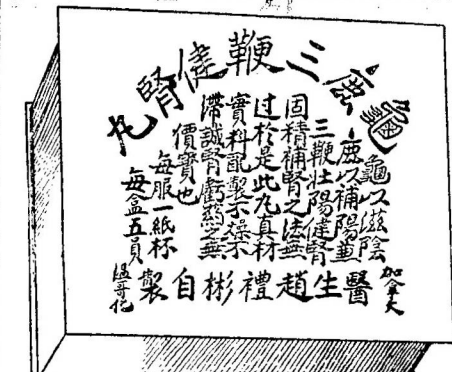 龜鹿三鞭健腎丸
龜以滋陰
鹿以補陽兼
三鞭壯陽健腎
固積補腎之法無
过於是此丸真材
實料配製不燥不
滯誠腎虧葯之無
價寶也
每服一紙杯
每盒五員
加拿大
醫生趙禮彬自製
温哥化